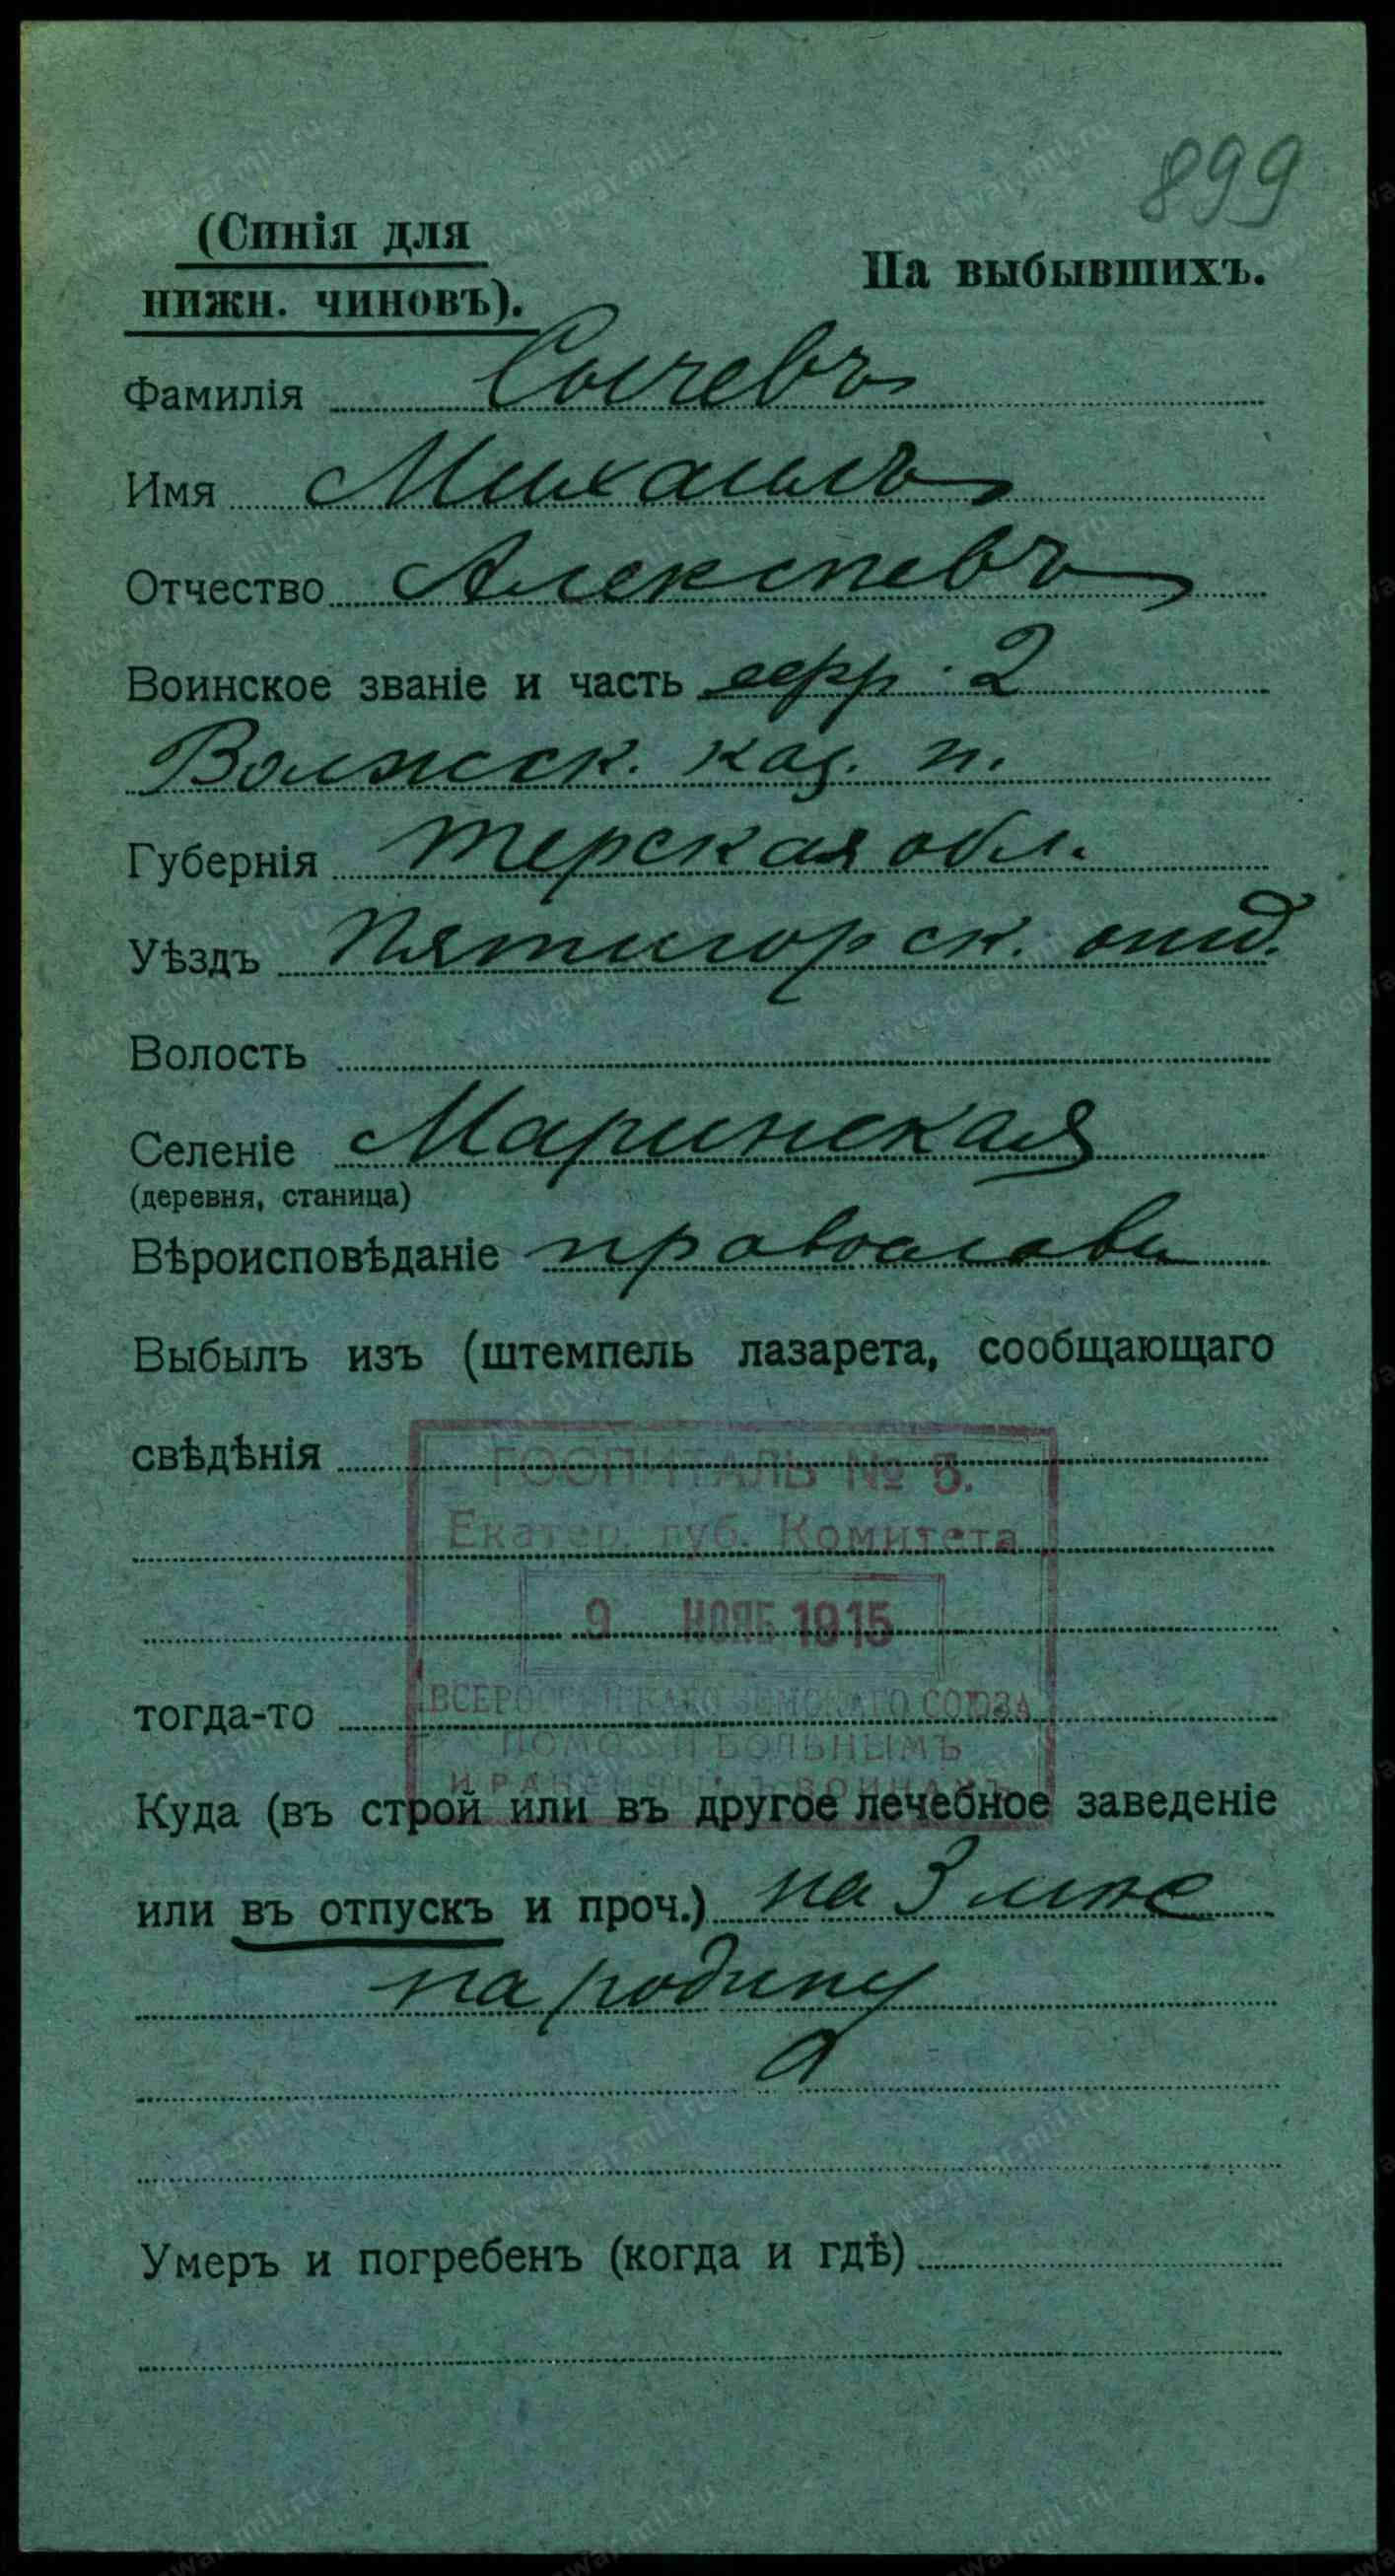 899
(Синія для
нижн. чиновъ).
На выбывшихъ.
Фамилія Сычевъ
Имя Михаилъ
Отчество Алексѣевъ
Воинское званіе и часть ефр. 2
Волжск. каз. п.
Губернія Терская обл.
Уѣздъ Пятигорск. отд.
Волость
Селеніе Маринская
(деревня, станица)
Вѣроисповѣданіе православн
Выбылъ изъ (штемпель лазарета, сообщающаго
свѣдѣнія
ГОСПИТАЛЬ № 3.
Екатер. губ. Комитета
9 НОЯБ 1915
ВСЕРОССІЙСКАГО ЗЕМСКАГО СОЮЗА
тогда-то
ПОМОЩИ БОЛЬНЫМЪ
И РАНЕНЫМЪ ВОИНАМЪ
Куда (въ строй или въ другое лечебное заведеніе
или въ отпускъ и проч.) на 3 мѣс
на родину
Умеръ и погребенъ (когда и гдѣ)